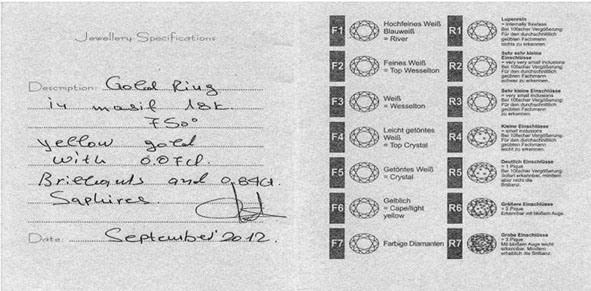 Jewellery Specifications
Description: Gold Ring
in masif 18k
750°
yellow gold
with 0.07ct.
Brilliants and 0,84ct.
Saphires.
Date: September 2012.
F1 Hochfeines Weiß
Blauweiß
= River
F2 Feines Weiß
= Top Wesselton
F3 Weiß
= Wesselton
F4 Leicht getöntes
Weiß
= Top Crystal
F5 Getöntes Weiß
= Crystal
F6 Gelblich
= Cape/light
yellow
F7 Farbige Diamanten
R1 Lupenrein
= Internally flawless
Bei 10facher Vergrößerung
Für den durchschnittlich
geübten Fachmann
nichts zu erkennen.
R2 Sehr sehr kleine
Einschlüsse
= very very small inclusions
Bei 10facher Vergrößerung
Für den durchschnittlich
geübten Fachmann
schwer zu erkennen.
R3 Sehr kleine Einschlüsse
= very small inclusions
Bei 10facher Vergrößerung
Für den durchschnittlich
geübten Fachmann
zu erkennen.
R4 Kleine Einschlüsse
= small inclusions
Bei 10facher Vergrößerung
Für den durchschnittlich
geübten Fachmann
leicht zu erkennen.
R5 Deutlich Einschlüsse
= 1 Pique
Bei 10facher Vergrößerung
Sofort erkennbar, mindern
aber nicht die
Brillanz.
R6 Größere Einschlüsse
= 2 Pique
Erkennbar mit bloßem Auge.
R7 Grobe Einschlüsse
= 3 Pique
Mit bloßem Auge leicht
erkennbar. Mindern
erheblich die Brillanz.